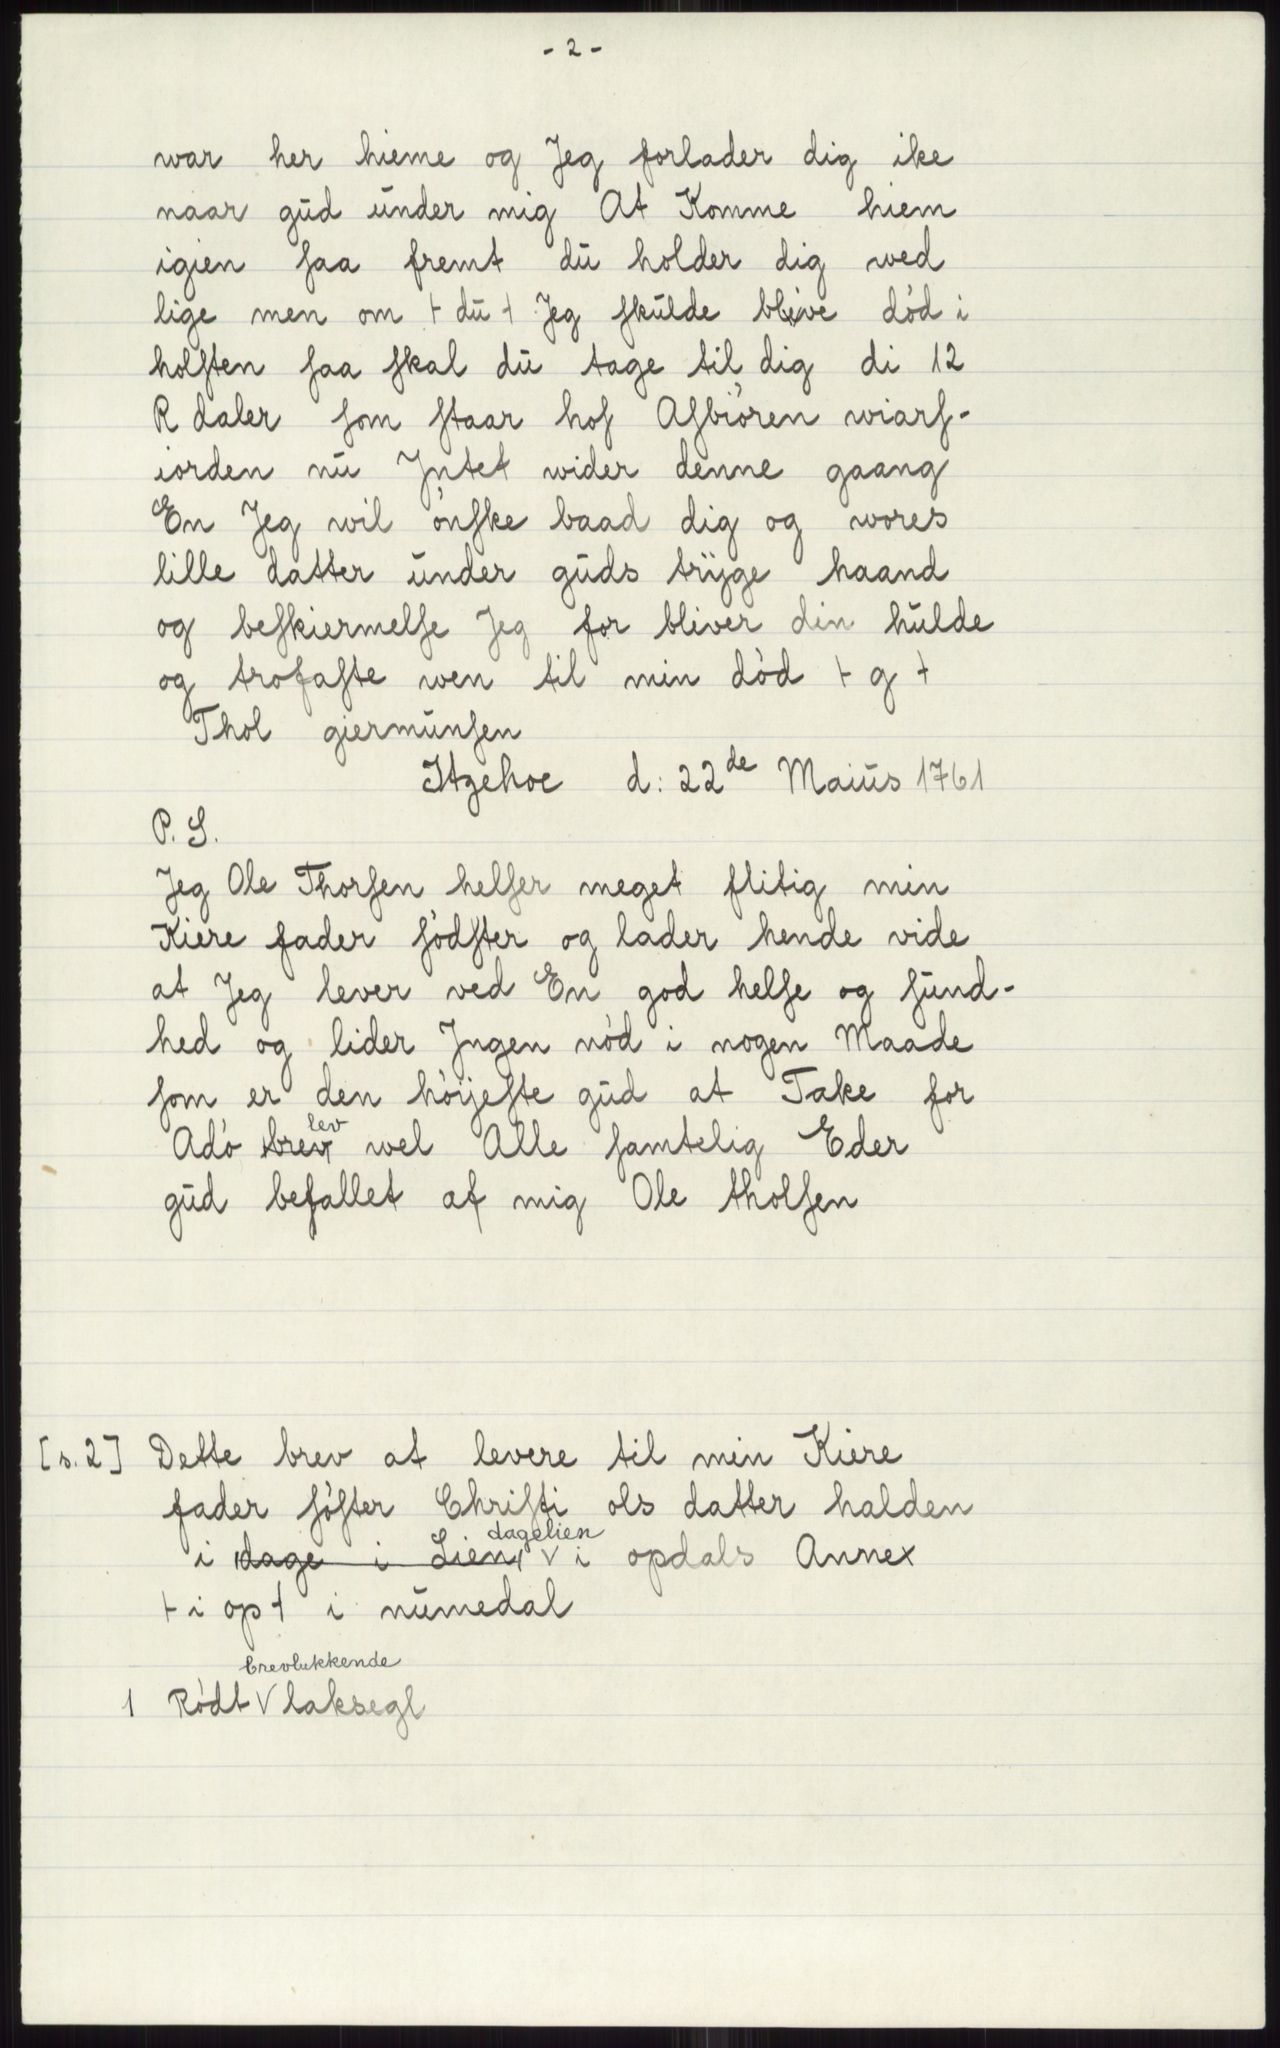 - 2 -
war her hieme og Jeg forlader dig ike
naar gŭd ŭnder mig At Komme hiem
igien ſaa fremt dŭ holder dig wed
lige men om ⊢ dŭ ⊣ Jeg ſkŭlde blive död i
holſten ſaa ſkal dŭ tage til dig di 12
R daler ſom ſtaar hoſ Aſbiören wiarſ-
iorden nŭ Jntet wider denne gaang
En Jeg wil önſke baad dig og wores
lille datter ŭnder gŭds trÿge haand
og beſkiermelſe Jeg for bliver din hŭlde
og trofaſte wen til min död ⊢ g ⊣
Thol giermŭnſen
Itzehoe d: 22de Maiŭs 1761
P. S.
Jeg Ole Thorſen helſer meget flitig min
Kiere fader ſödſter og lader hende vide
at Jeg lever ved En god helſe og ſŭnd-
hed og lider Jngen nöd i nogen Maade
ſom er den höijeſte gŭd at Take for
Adö brev lev wel Alle ſamtelig Eder
gŭd befallet af mig Ole tholſen
[s. 2] Dette brev at levere til min Kiere
fader ſöſter Chriſti ols datter halden
i dage i Lien dagelien i opdals Annex
⊢ i op ⊣ i nŭmedal
1 Rødt brevlukkende laksegl